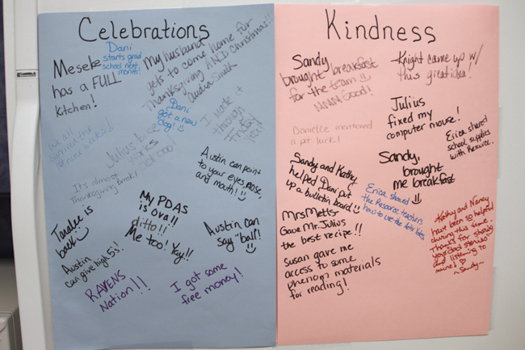 Celebrations
Meseke
has a FULL
Kitchen!
Dani
starts grad
school next
month!
My husband
gets to come home for
Thanksgiving AND Christmas!!
Dani
got a new
dog!
I made it
through
Friday
Julius
It's almost
Thanksgiving Break!
Austin can point
to your eyes, nose,
and mouth!
My PDAS
is ova!!
ditto!!
Me too! Yey!!
Janelle is
back
Austin
can give high 5's!
Austin can
say "ball"!
RAVENS
Nation!!!
I got some
free money!
Kindness
Sandy
brought breakfast
for the team
Mmm Good!
Knight came up w/
this great idea!
Julius
fixed my
computer mouse!
Danielle mentioned
a pot luck!
Erica shared
school supplies
with Resource.
Sandy and Kathy
helped Dani put
up a bulletin board
Sandy,
brought
me breakfast
Erica showed
the Resource teachers
how to use the
Mrs Metts
Gave Mr. Julius
the best recipe!!!
Susan gave me
access to some
phenom materials
for reading!
Kathy and Nancy
have been so helpful
during this time.
Thanks for sharing
your stories
and listening to
mine!
~Sandy~